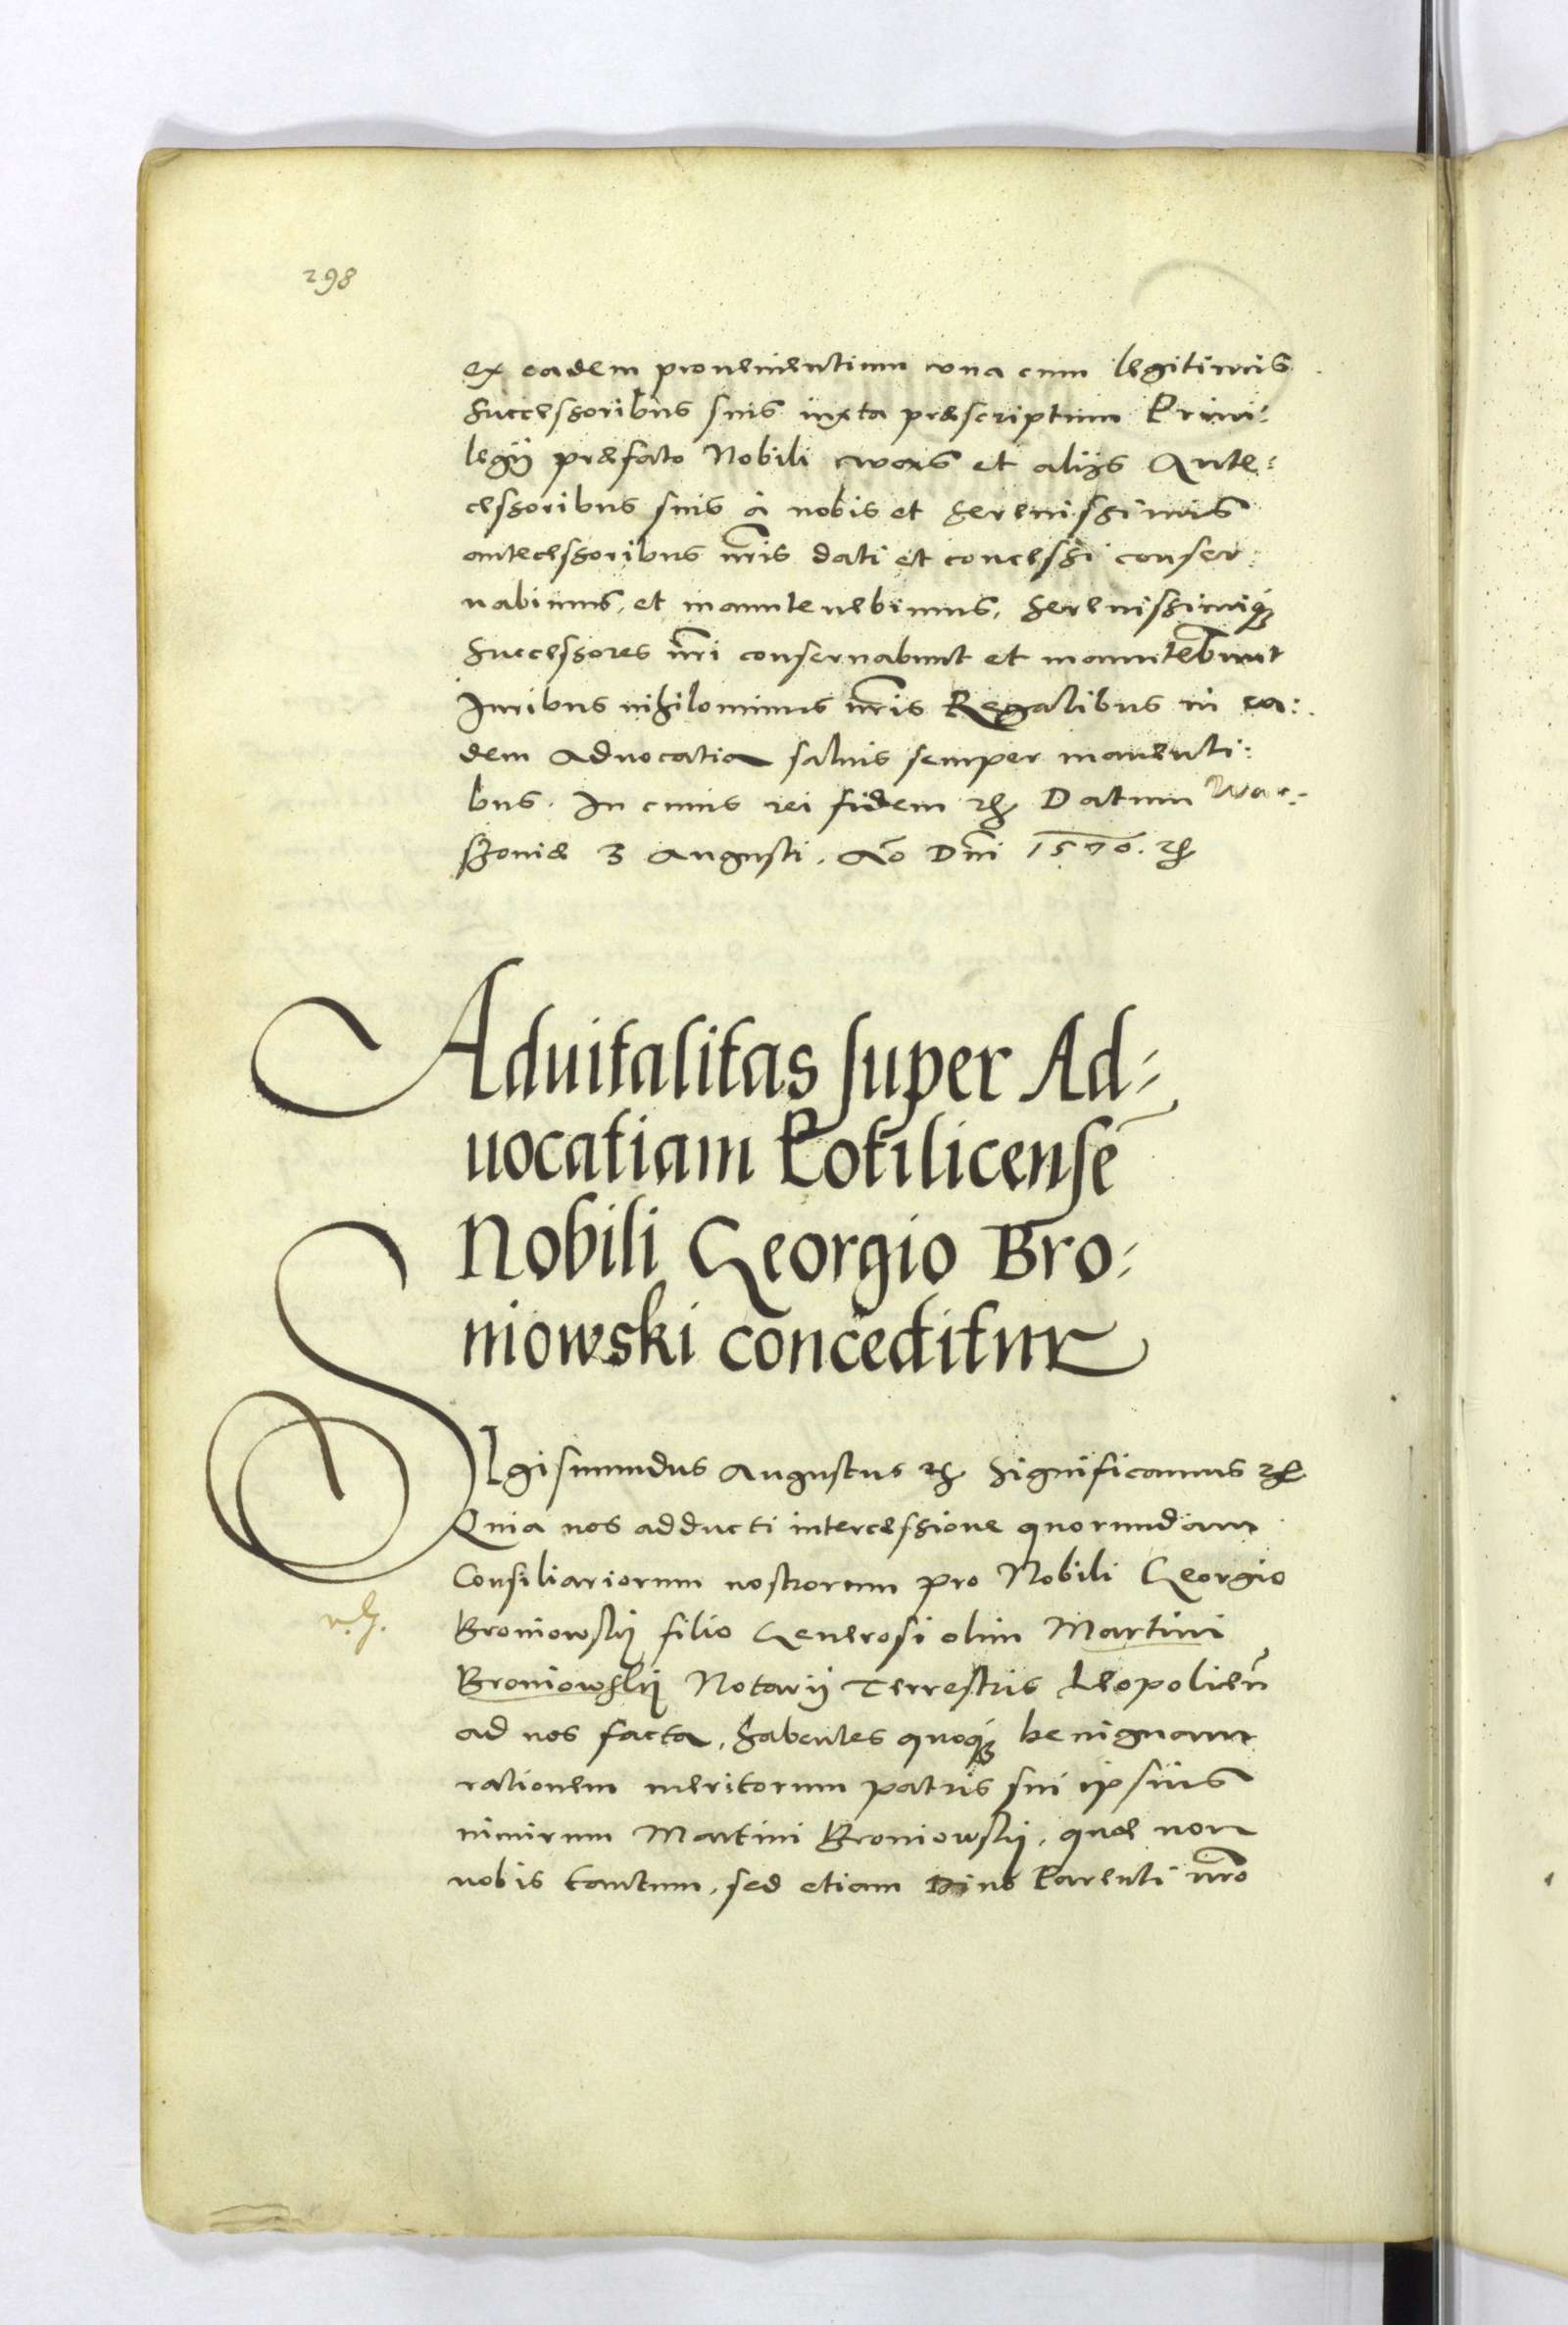 298
ex eadem prouenientium vna cum legitimis
Successoribus suis iuxta præscriptum Priui:
legÿ præfato Nobili et alÿs Ante:
cessoribus suis à nobis et Serenissimis
antecessoribus nr̃is dati et concessi conser:
uabimus, et manutenebimus, Serenissimiq́ꝫ
Successores nr̃i conseruabunt et manuteb̃unt
Iuribus nihilominus nr̃is Regalibus in ea:
dem Aduocatia saluis semper manenti:
bus. In cuius rei fidem ꝛc̃ Datum War:
szouiæ 3 Augusti. Ao͂ Dn̄i 1570. ꝛc̃
Aduitalitas super Ad:
uocatiam Potilicensē
Nobili Georgio Bro:
niowski conceditur
SIgismundus Augustus ꝛc̃ Significamus ꝛc̃
Quia nos adducti intercessione quorundam
Consiliariorum nostrorum pro Nobili Georgio
Broniowskÿ filio Generosi olim Martini
Broniowskÿ Notarÿ Terrestris Leopolien̄
ad nos facta, habentes quoq́ꝫ benignam
rationem meritorum patris sui ipsius
nimirum Martini Broniowskÿ, quæ non
nobis tantum, sed etiam Diuo Parenti nr̃o